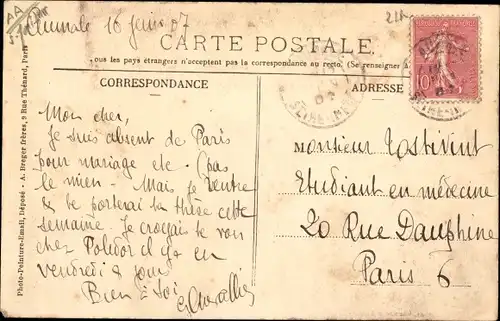 Aumale 16 Janv 07
CARTE POSTALE.
Tous les pays étrangers n'acceptent pas la correspondance au recto. (Se renseigner à
CORRESPONDANCE
ADRESSE
Mon cher,
Je suis absent de Paris
pour mariage etc - (pas
le mien - Mais je rentre
& te porterai ta thèse cette
semaine. Je croyais te voir
chez Polidor il y a en
vendredi 8 jours
Bien à toi
Monsieur Tostivint
Etudiant en médecine
20 Rue Dauphine
Paris 6
10
Photo-Peinture-Email, Déposé - A. Breger frères, 9 Rue Thénard, Paris